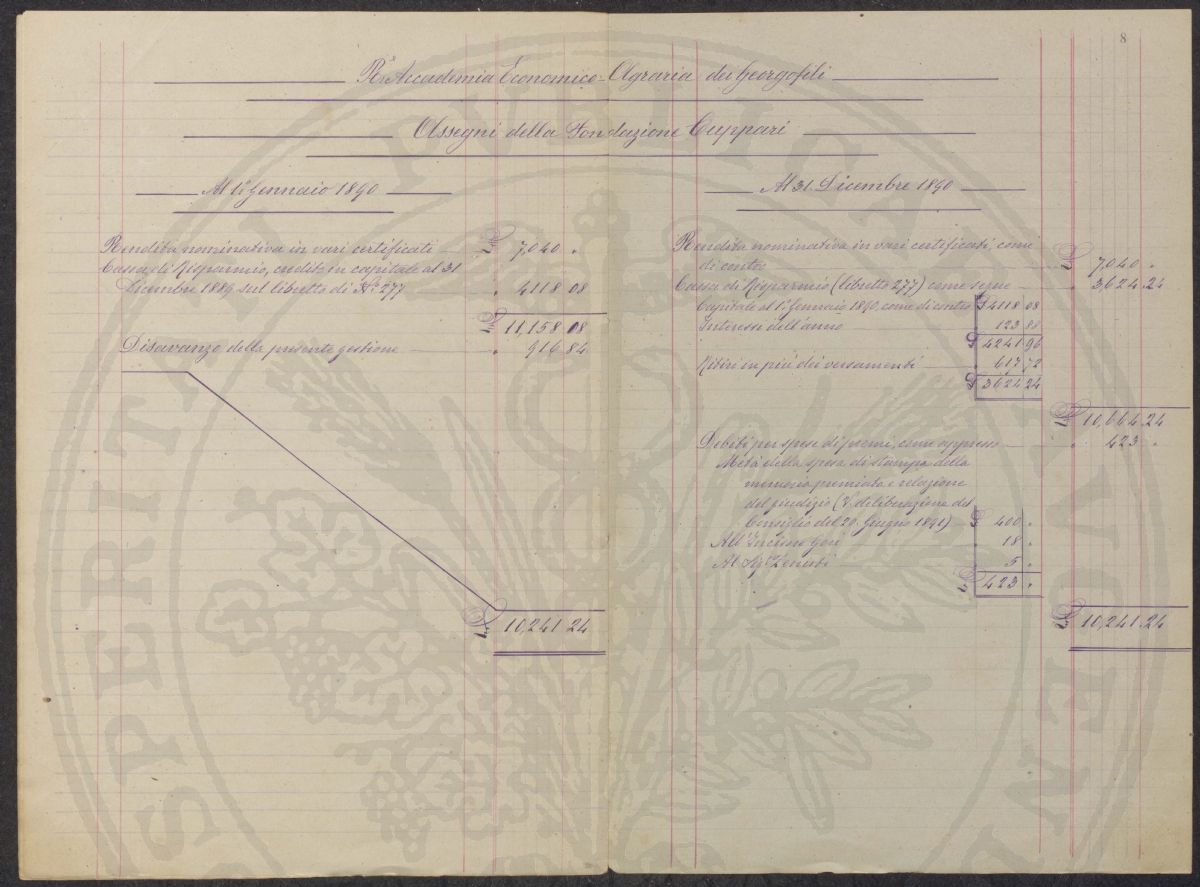 8
Rª Accademia Economico-Agraria dei Georgofili
Assegni della Fondazione Cuppari
Al 1º Gennaio 1890
Rendita nominativa in vari certificati £ 7,040 "
Cassa di Risparmio, credito in capitale al 31
Dicembre 1889 sul libretto di Nº 277 " 4118 08
£ 11,158 08
Disavanzo della presente gestione " 916 84
£ 10,241 24
Al 31 Dicembre 1890
Rendita nominativa in vari certificati, come
di contro £ 7,040 "
Cassa di Risparmio (libretto 277) come segue " 3,624.24
Capitale al 1º Gennaio 1890 come di contro £ 4118 08
Interessi dell'anno " 123 88
£ 4241 96
Ritiri in più dei versamenti " 617 72
£ 3624 24
£ 10,664.24
Debiti per spese di premi, come appresso " 423 "
Metà della spesa di stampa della
memoria premiata e relazione
del giudizio (V. deliberazione del
Consiglio del 20 Giugno 1891) £ 400 "
All' Incisore Gori " 18 "
Al Sigr " 5 "
£ 423 "
£ 10,241.24
PROSPERITATI PVBLICAE AVGEND